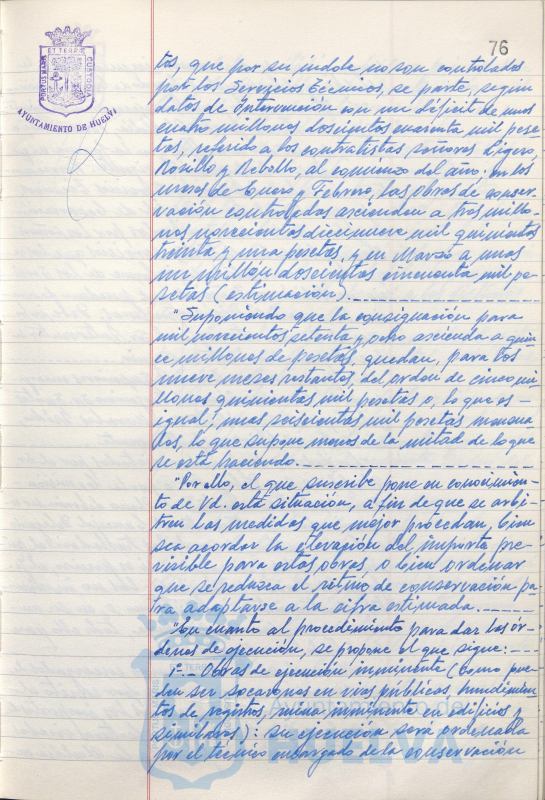 76
ET TERRE
CUSTODIA
PORTUS MARIS
AYUNTAMIENTO DE HUELVA
tos, que por su índole no son controlados
por los Servicios Técnicos, se parte, según
datos de Intervención con un déficit de unos
cuatro millones doscientos cuarenta mil pese-
tas, referido a los contratistas señores Ligero,
Rosillo y Rebollo, al comienzo del año: en los
meses de Enero y Febrero, las obras de conser-
vación controladas ascienden a tres millo-
nes novecientos diecinueve mil quinientos
treinta y una pesetas, y en Marzo a unos
un millón doscientas cincuenta mil pe-
setas (estimación).
"Suponiendo que la consignación para
mil novecientos setenta y ocho ascienda a quin-
ce millones de pesetas, quedan, para los
nueve meses restantes, del orden de cinco mi-
llones quinientas mil pesetas o, lo que es
igual, unas seiscientas mil pesetas mensua-
les, lo que supone menos de la mitad de lo que
se está haciendo.
"Por ello, el que suscribe pone en conocimien-
to de Vd. esta situación, a fin de que se arbi-
tren las medidas que mejor procedan, bien
sea acordar la elevación del importe pre-
visible para estas obras, o bien ordenar
que se reduzca el ritmo de conservación pa-
ra adaptarse a la cifra estimada.
"En cuanto al procedimiento para dar las ór-
denes de ejecución, se propone el que sigue:
1º.- Obras de ejecución inminente (como pue-
den ser socavones en vías públicas, hundimien-
tos de registros, ruina inminente en edificios y
similares): su ejecución será ordenada
por el técnico encargado de la conservación
Ayuntamiento de
HUELVA